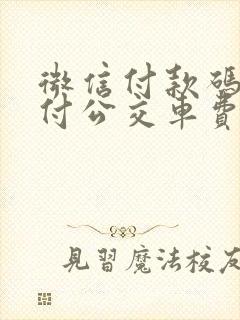 微信付款碼
付公交車費
見習魔法校友